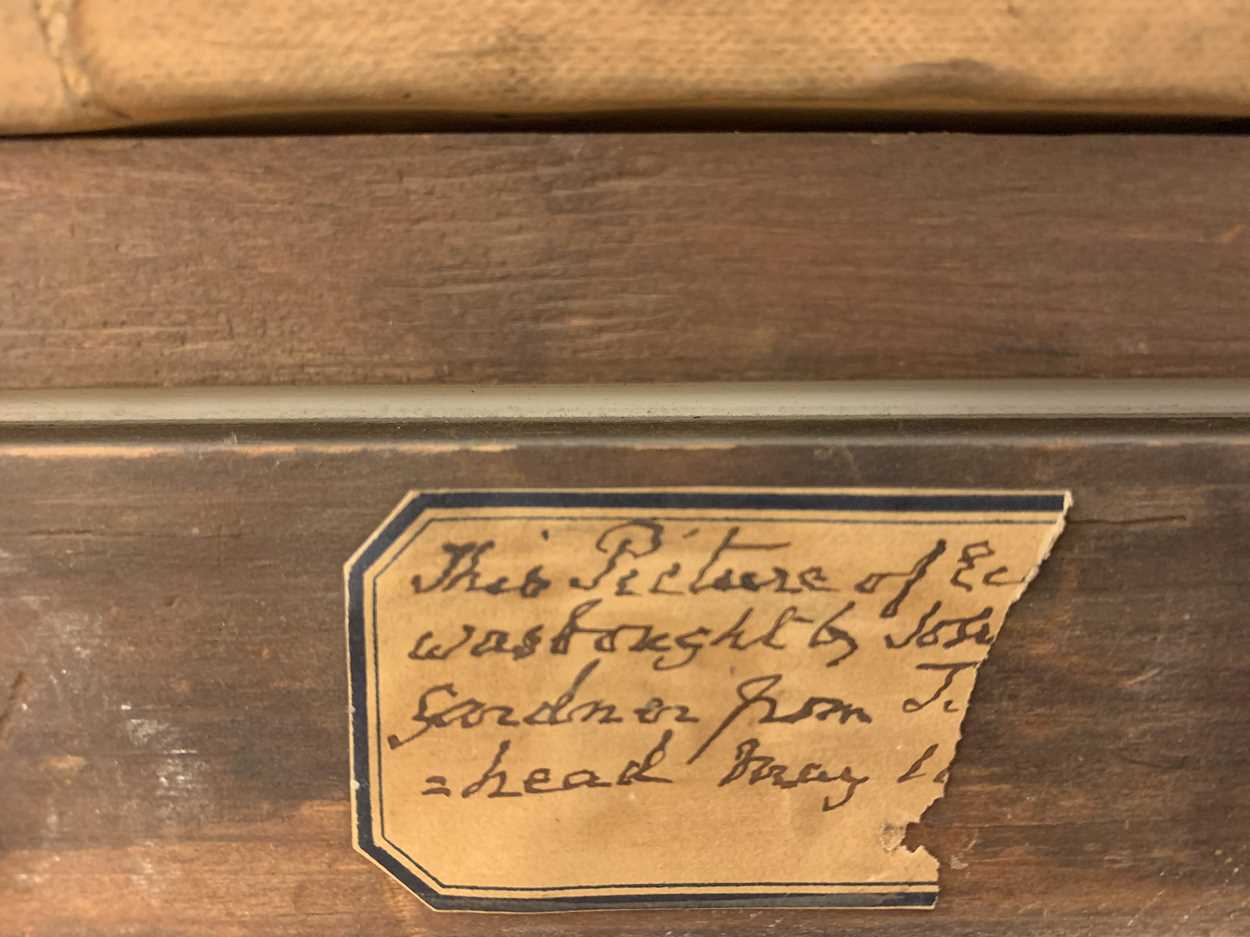 This Picture of Ec
was bought by Joh
Gardner from T.
=head May 1